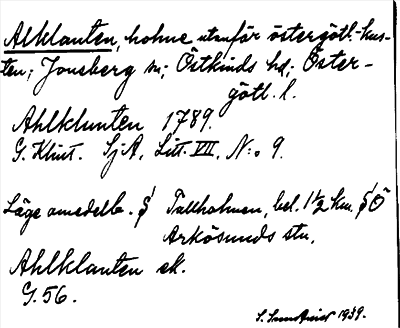 Alklanten, holme utanför östergötl.-kus-
ten; Jonsberg sn; Östkinds hd; Öster-
götl. l.
Ahlklunten 1789.
G. Klint. SjA. Litt. VII, N:o 9.
Läge omedelb. S Tallholmen, bel. 1½ km. SÖ
Arkösunds stn.
Ahlklanten sk.
G. 56.
S. 1939.